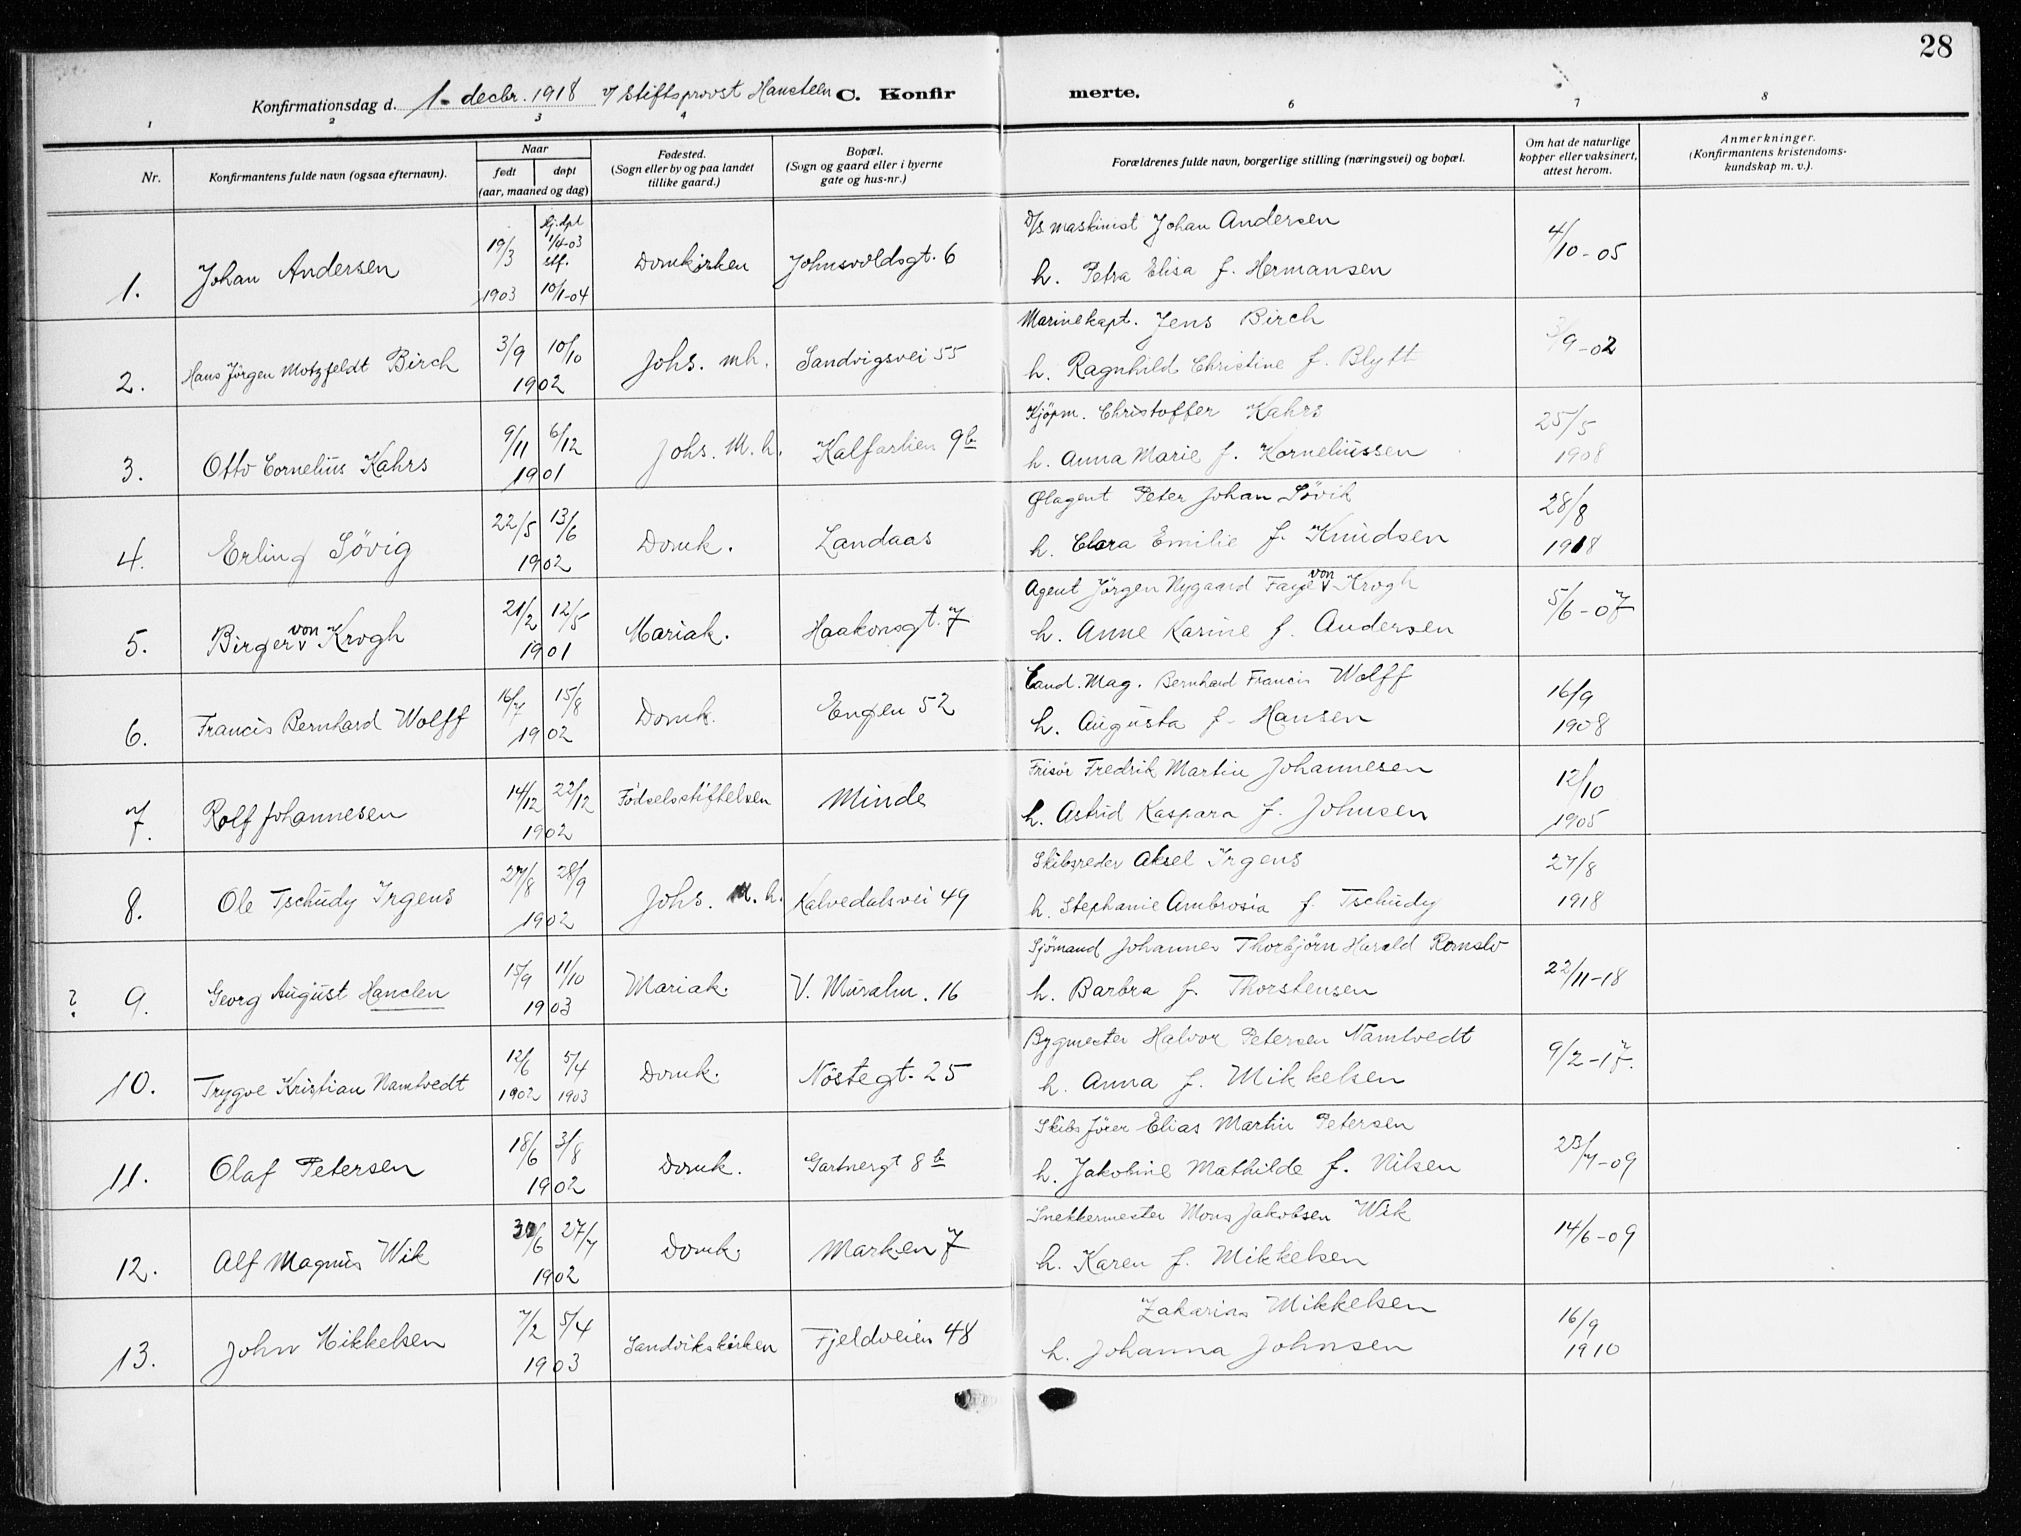 28
Konfirmationsdag d. 1. decbr. 1918 v/ Stiftsprovst Hansteen C. Konfir merte.
1 2 3 4 6 7 8
Nr.
Konfirmantens fulde navn (ogsaa efternavn).
Naar
født døpt
(aar, maaned og dag)
Fødested.
(Sogn eller by og paa landet
tillike gaard.)
Bopæl.
(Sogn og gaard eller i byerne
gate og hus-nr.)
Forældrenes fulde navn, borgerlige stilling (næringsvei) og bopæl.
Om hat de naturlige
kopper eller vaksinert,
attest herom.
Anmerkninger.
(Konfirmantens kristendoms-
kundskap m. v.).
1. Johan Andersen 19/3 1903 hj.dpt 1/4-03 stf. 10/1-04 Domkirken Johnsvoldsgt. 6
D/s maskinist Johan Andersen
h. Petra Elisa f. Hermansen
4/10-05
2. Hans Jörgen Motzfeldt Birch 3/9 10/10 1902 Johs. mh. Sandvigsvei 55
Marinekapt. Jens Birch
h. Ragnhild Christine f. Blytt
3/9-02
3. Otto Cornelius Kahrs 9/11 6/12 1901 Johs. M. h. Kalfarlien 9b
Kjöpm. Christoffer Kahrs
h. Anna Marie f. Korneliussen
25/5 1908
4. Erling Sövig 22/5 13/6 1902 Domk. Landaas
Ølagent Peter Johan Sövik
h. Clara Emilie f. Knudsen
28/8 1918
5. Birger von Krogh 21/2 12/5 1901 Mariak. Haakonsgt. 7
Agent Jörgen Nygaard Faye von Krogh
h. Anne Karine f. Andersen
5/6-07
6. Francis Bernhard Wolff 16/7 15/8 1902 Domk. Engen 52
Cand. Mag. Bernhard Francis Wolff
h. Augusta f. Hansen
16/9 1908
7. Rolf Johannesen 14/12 22/12 1902 Födselsstiftelsen Minde
Frisör Fredrik Martin Johannesen
h. Astrid Kaspara f. Johnsen
12/10 1905
8. Ole Tschudy Irgens 27/8 28/9 1902 Johs. M. h. Kalvedalsvei 49
Skibsreder Aksel Irgens
h. Stephanie Ambrosia f. Tschudy
27/8 1918
? 9. Georg August Hanclen 15/9 11/10 1903 Mariak. V. Muralm. 16
Sjömand Johannes Thorbjörn Harald Romslo
h. Barbra f. Thorstensen
22/11-18
10. Trygve Kristian Namtvedt 12/6 1902 5/4 1903 Domk. Nöstegt. 25
Bygmester Halvor Petersen Namtvedt
h. Anna f. Mikkelsen
9/2-17.
11. Olaf Petersen 18/6 3/8 1902 Domk. Gartnergt 8b
Skibsförer Elias Martin Petersen
h. Jakobine Mathilde f. Nilsen
23/7-09
12. Alf Magnus Wik 30/6 27/7 1902 Domk. Marken 7
Snekkermester Mons Jakobsen Wik
h. Karen f. Mikkelsen
14/6-09
13. John Mikkelsen 7/2 5/4 1903 Sandvikskirken Fjeldveien 48
Zakarias Mikkelsen
h. Johanna Johnsen
16/9 1910